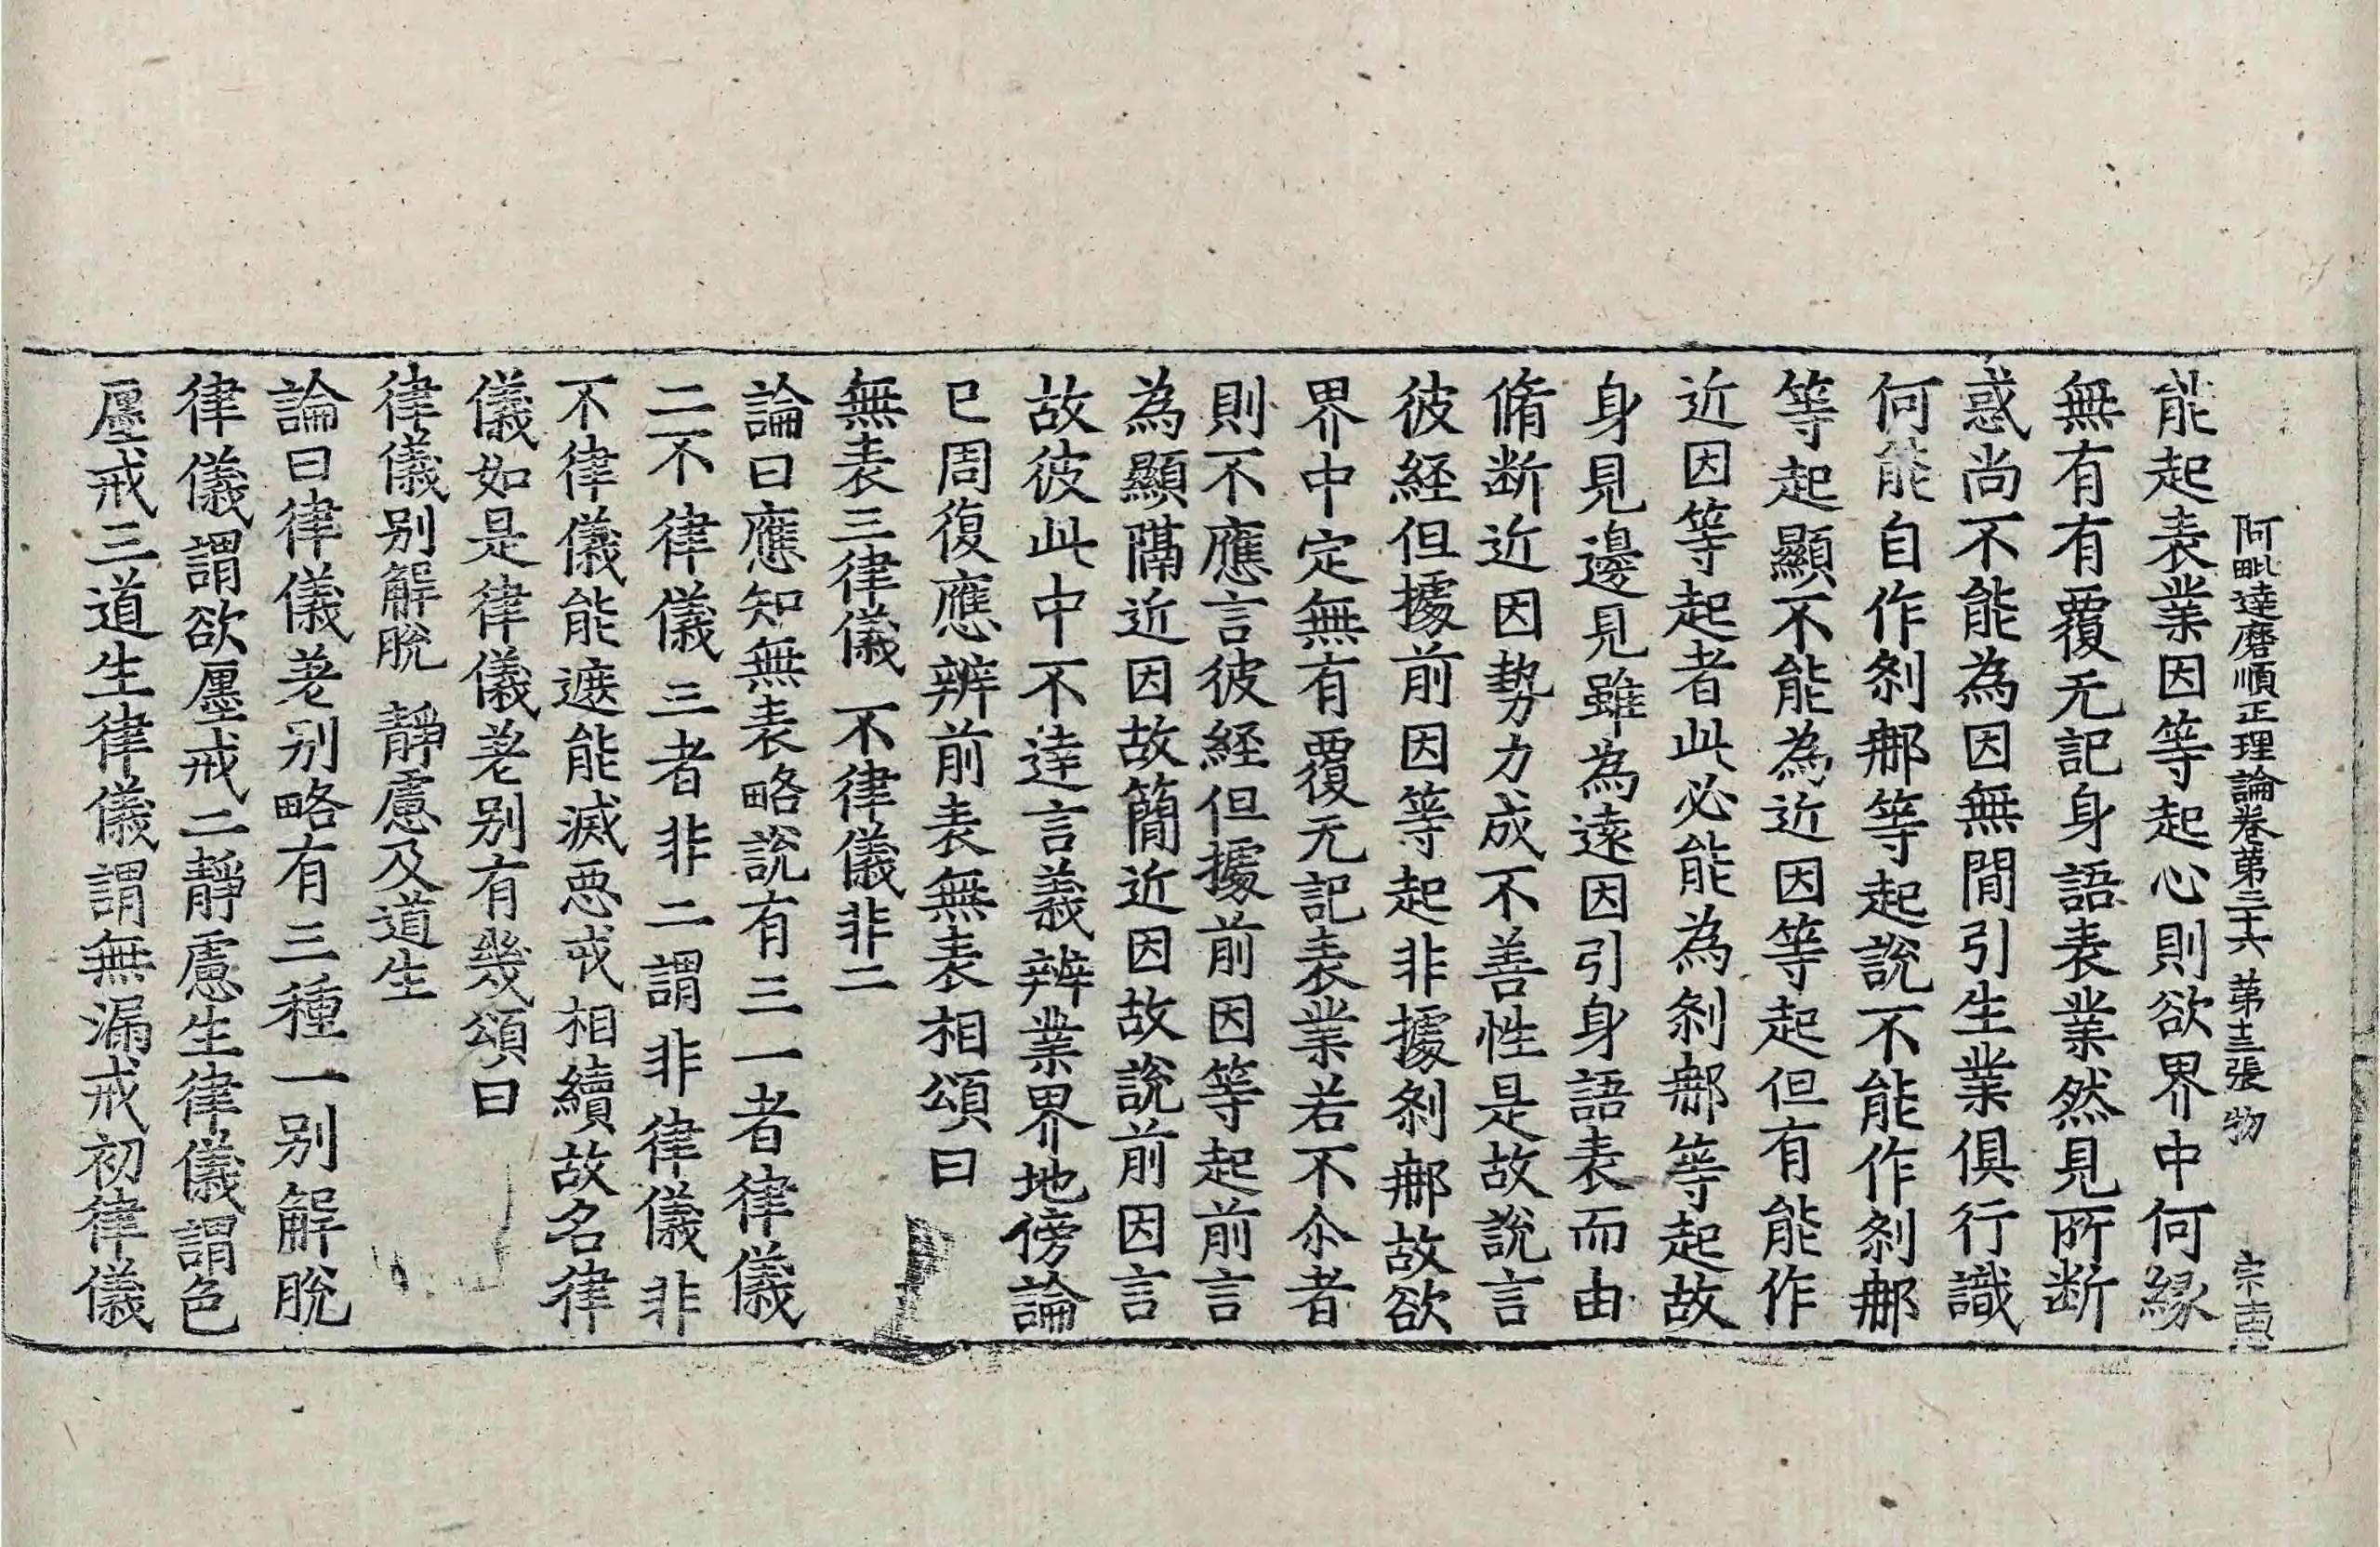 阿毗達磨順正理論卷第三十六 第十三張 物
能起表業因等起心則欲界中何緣
無有有覆无記身語表業然見所断
惑尚不能為因無閒引生業俱行識
何能自作剎那等起說不能作剎那
等起顯不能為近因等起但有能作
近因等起者此必能為剎那等起故
身見邊見雖為遠因引身語表而由
脩断近因勢力成不善性是故說言
彼経但據前因等起非據剎那故欲
界中定無有覆无記表業若不尒者
則不應言彼経但據前因等起前言
為顯隔近因故簡近因故說前因言
故彼此中不達言義辨業界地傍論
已周復應辨前表無表相頌曰
無表三律儀 不律儀非二
論曰應知無表略說有三一者律儀
二不律儀三者非二謂非律儀非
不律儀能遮能滅惡戒相續故名律
儀如是律儀差別有幾頌曰
律儀別解脫 靜慮及道生
論曰律儀差別略有三種一別解脫
律儀謂欲𢌅戒二靜慮生律儀謂色
𢌅戒三道生律儀謂無漏戒初律儀